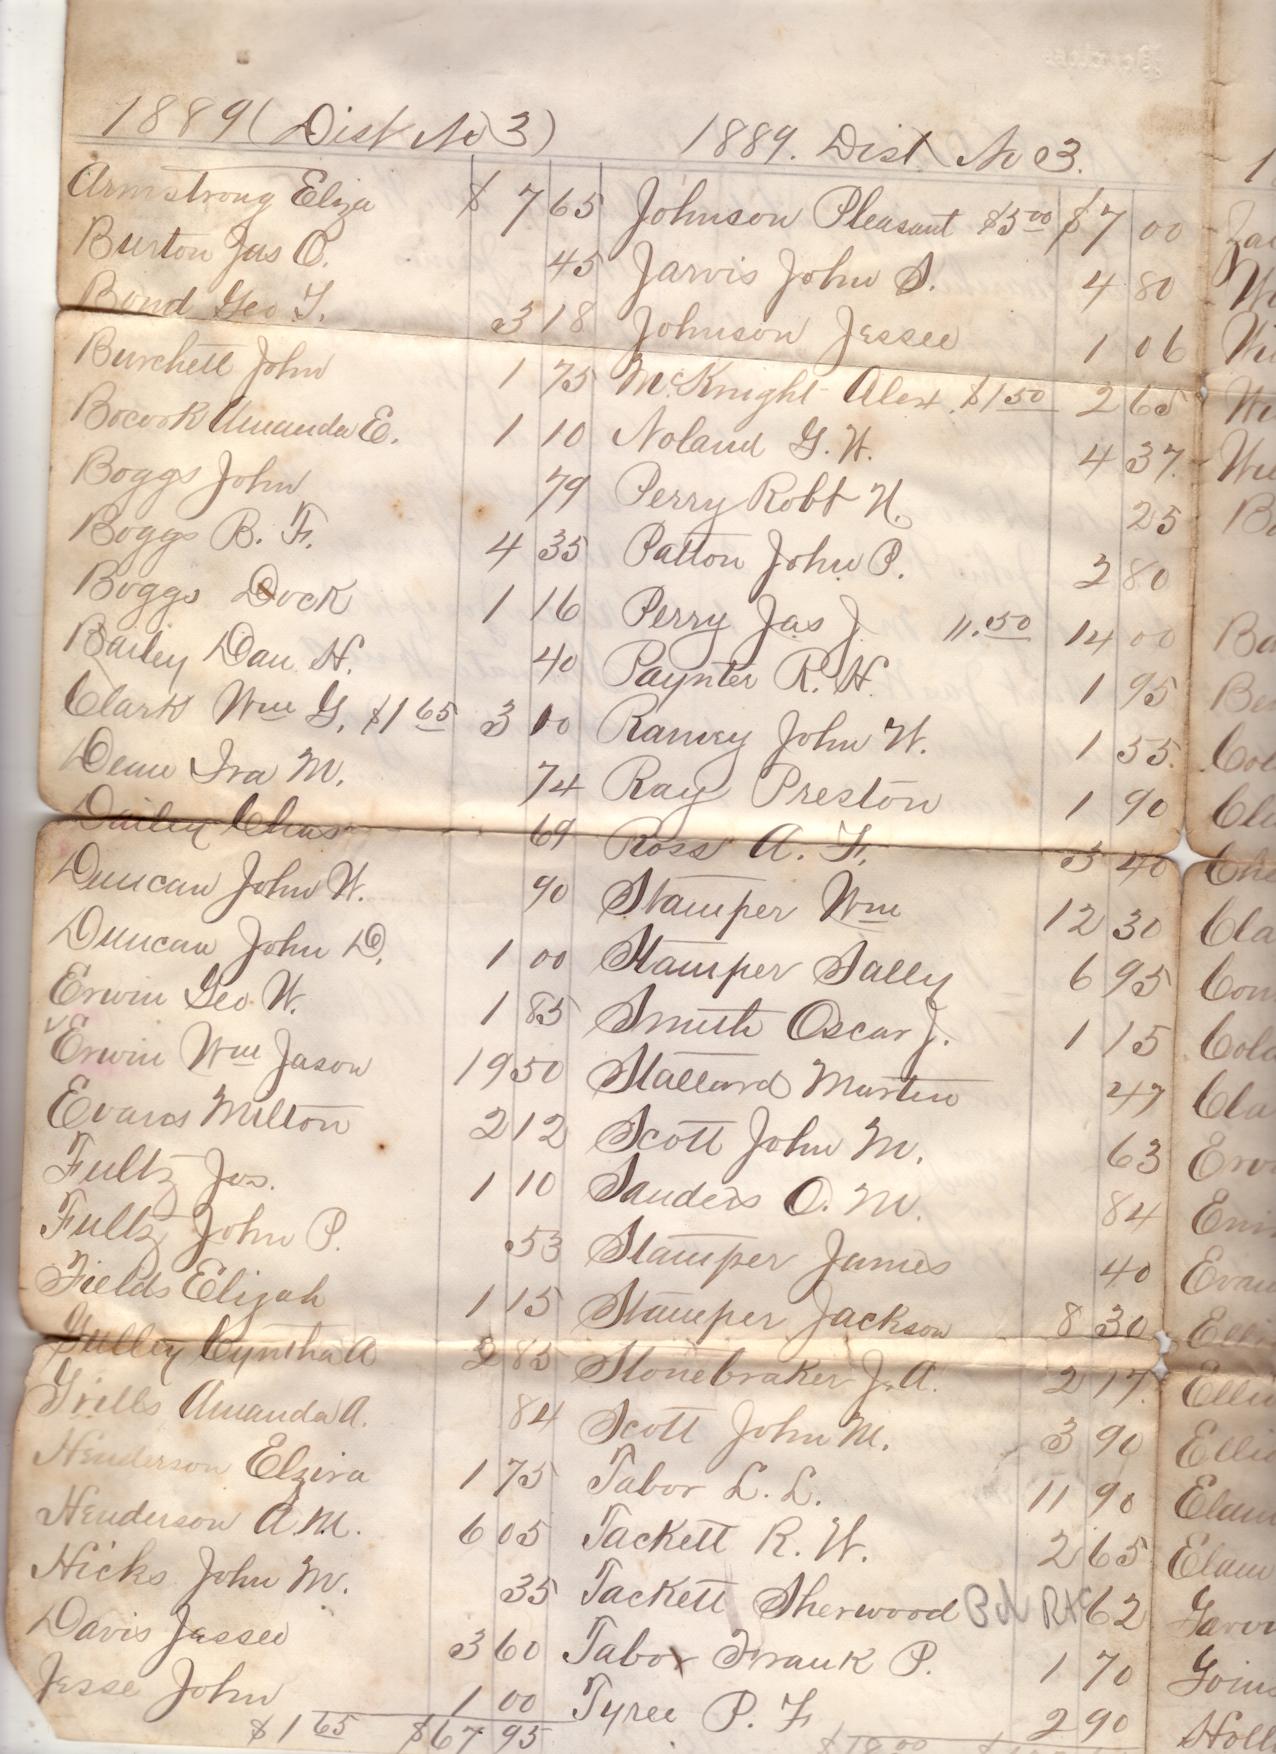 1889 (Dist No 3)
Armstrong Eliza $ 7 65
Burton Jas O. 45
Bond Geo T. 3 18
Burchett John 1 75
Bocook Amanda E. 1 10
Boggs John 79
Boggs B. F. 4 35
Boggs Dock 1 16
Bailey Dan H. 40
Clark Wm G. $1 65 3 10
Dean Ira M. 74
Dailey Chas 69
Duncan John W. 90
Duncan John D. 1 00
Erwin Geo W. 1 85
Erwin Wm Jason 19 50
Evans Milton 2 12
Fultz Jas. 1 10
Fultz John P. 53
Fields Elijah 1 15
Gulley Cyntha A 2 85
Grills Amanda A. 84
Henderson Elzira 1 75
Henderson A. M. 6 05
Hicks John M. 35
Davis Jessee 3 60
Jesse John 1 00
$1 65 $67 95
1889. Dist No 3.
Johnson Pleasant $5 00 $7 00
Jarvis John S. 4 80
Johnson Jessee 1 06
McKnight Alex. $1 50 2 65
Noland G. W. 4 37.
Perry Robt H. 25
Patton John P. 3 80
Perry Jas J. 11. 50 14 00
Paynter R. H. 1 95
Ramey John W. 1 55.
Ray Preston 1 90
Ross A. F. 3 40
Stamper Wm 12 30
Stamper Sally 6 95
Smith Oscar J. 1 15
Stallard Martin 47
Scott John M. 63
Sanders O. M. 84
Stamper James 40
Stamper Jackson 8 30
Stonebraker J. A. 2 17.
Scott John M. 3 90
Tabor L. L. 11 90
Tackett R. W. 2 65
Tackett Sherwood 62
Tabor Frank P. 1 70
Tyree P. F 2 90
$18 00